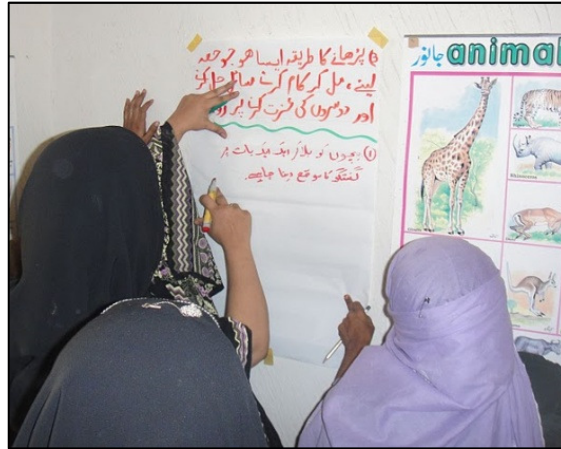 ② پڑھانے کا طریقہ ایسا ہو جو حصہ
لینے، مل کر کام کرنے مسائل حل کرنے
اور دوسروں کی عزت کرنے پر
① بچوں کو بلا کر ایک ایک بات پر
گفتگو کا موقع دینا چاہیے۔
جانور animal